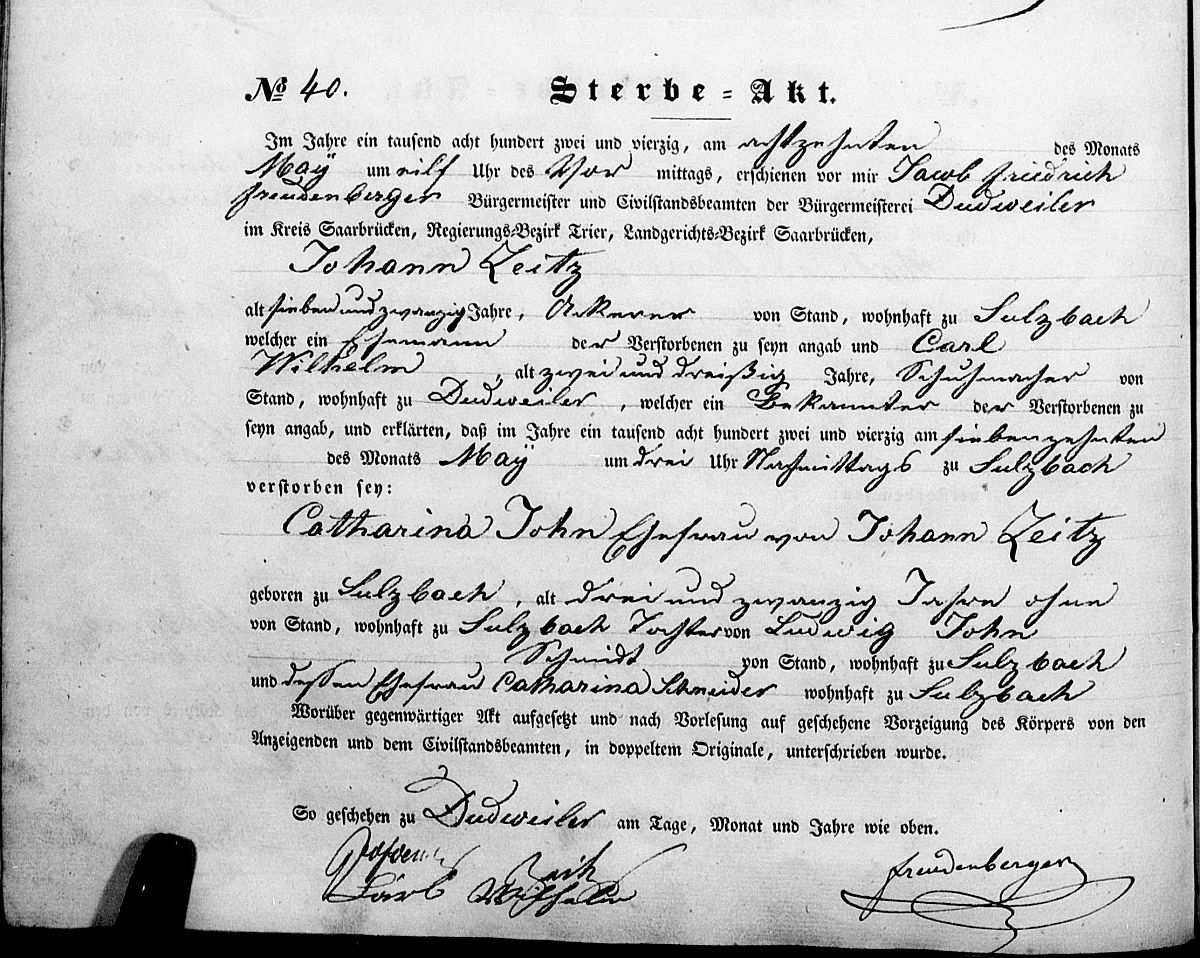 № 40. Sterbe=Akt.
Im Jahre ein tausend acht hundert zwei und vierzig, am achtzehnten des Monats
Maÿ um eilf Uhr des Vor mittags, erschienen vor mir Jacob Friedrich
Freudenberger Bürgermeister und Civilstandsbeamten der Bürgermeisterei Dudweiler
im Kreis Saarbrücken, Regierungs-Bezirk Trier, Landgerichts-Bezirk Saarbrücken,
Johann Zeitz
alt sieben und zwanzig Jahre, Ackerer von Stand, wohnhaft zu Sulzbach
welcher ein Ehemann der Verstorbenen zu seyn angab und Carl
Wilhelm, alt zwei und dreißig Jahre, Schuhmacher von
Stand, wohnhaft zu Dudweiler, welcher ein Bekannter der Verstorbenen zu
seyn angab, und erklärten, daß im Jahre ein tausend acht hundert zwei und vierzig am siebenzehnten
des Monats Maÿ um drei Uhr Nachmittags zu Sulzbach
verstorben sey:
Catharina John Ehefrau von Johann Zeitz
geboren zu Sulzbach, alt drei und zwanzig Jahre ohne
von Stand, wohnhaft zu Sulzbach Tochter von Ludwig John
Schmidt von Stand, wohnhaft zu Sulzbach
und dessen Ehefrau Catharina Schneider wohnhaft zu Sulzbach
Worüber gegenwärtiger Akt aufgesetzt und nach Vorlesung auf geschehene Vorzeigung des Körpers von den
Anzeigenden und dem Civilstandsbeamten, in doppeltem Originale, unterschrieben wurde.
So geschehen zu Dudweiler am Tage, Monat und Jahre wie oben.
Johann Zeitz
Carl Wilhelm Freudenberger